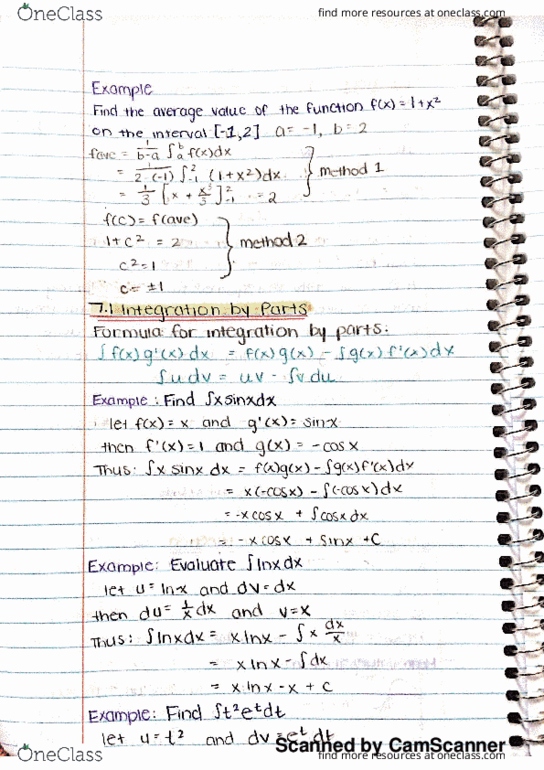 OneClass
find more resources at oneclass.com
Example
Find the average value of the function f(x) = 1+x²
on the interval [-1,2] a = -1, b = 2
fave = 1/b-a ∫ₐᵇ f(x)dx
= 1/2-(-1) ∫₋₁² (1+x²)dx
= 1/3 [x + x³/3]₋₁² = 2
} method 1
f(c) = f(ave)
1+c² = 2
c² = 1
c = ±1
} method 2
7.1 Integration by Parts
Formula for integration by parts:
∫f(x)g'(x)dx = f(x)g(x) - ∫g(x)f'(x)dx
∫u dv = uv - ∫v du
Example: Find ∫xsinxdx
let f(x) = x and g'(x) = sinx
then f'(x) = 1 and g(x) = -cosx
Thus: ∫x sinx dx = f(x)g(x) - ∫g(x)f'(x)dx
= x(-cosx) - ∫(-cosx)dx
= -xcosx + ∫cosxdx
= -xcosx + sinx + C
Example: Evaluate ∫lnxdx
let u = lnx and dv = dx
then du = 1/x dx and v = x
Thus: ∫lnxdx = xlnx - ∫x dx/x
= xlnx - ∫dx
= xlnx - x + C
Example: Find ∫t²eᵗdt
let u = t² and dv = eᵗ dt
Scanned by CamScanner
OneClass
find more resources at oneclass.com